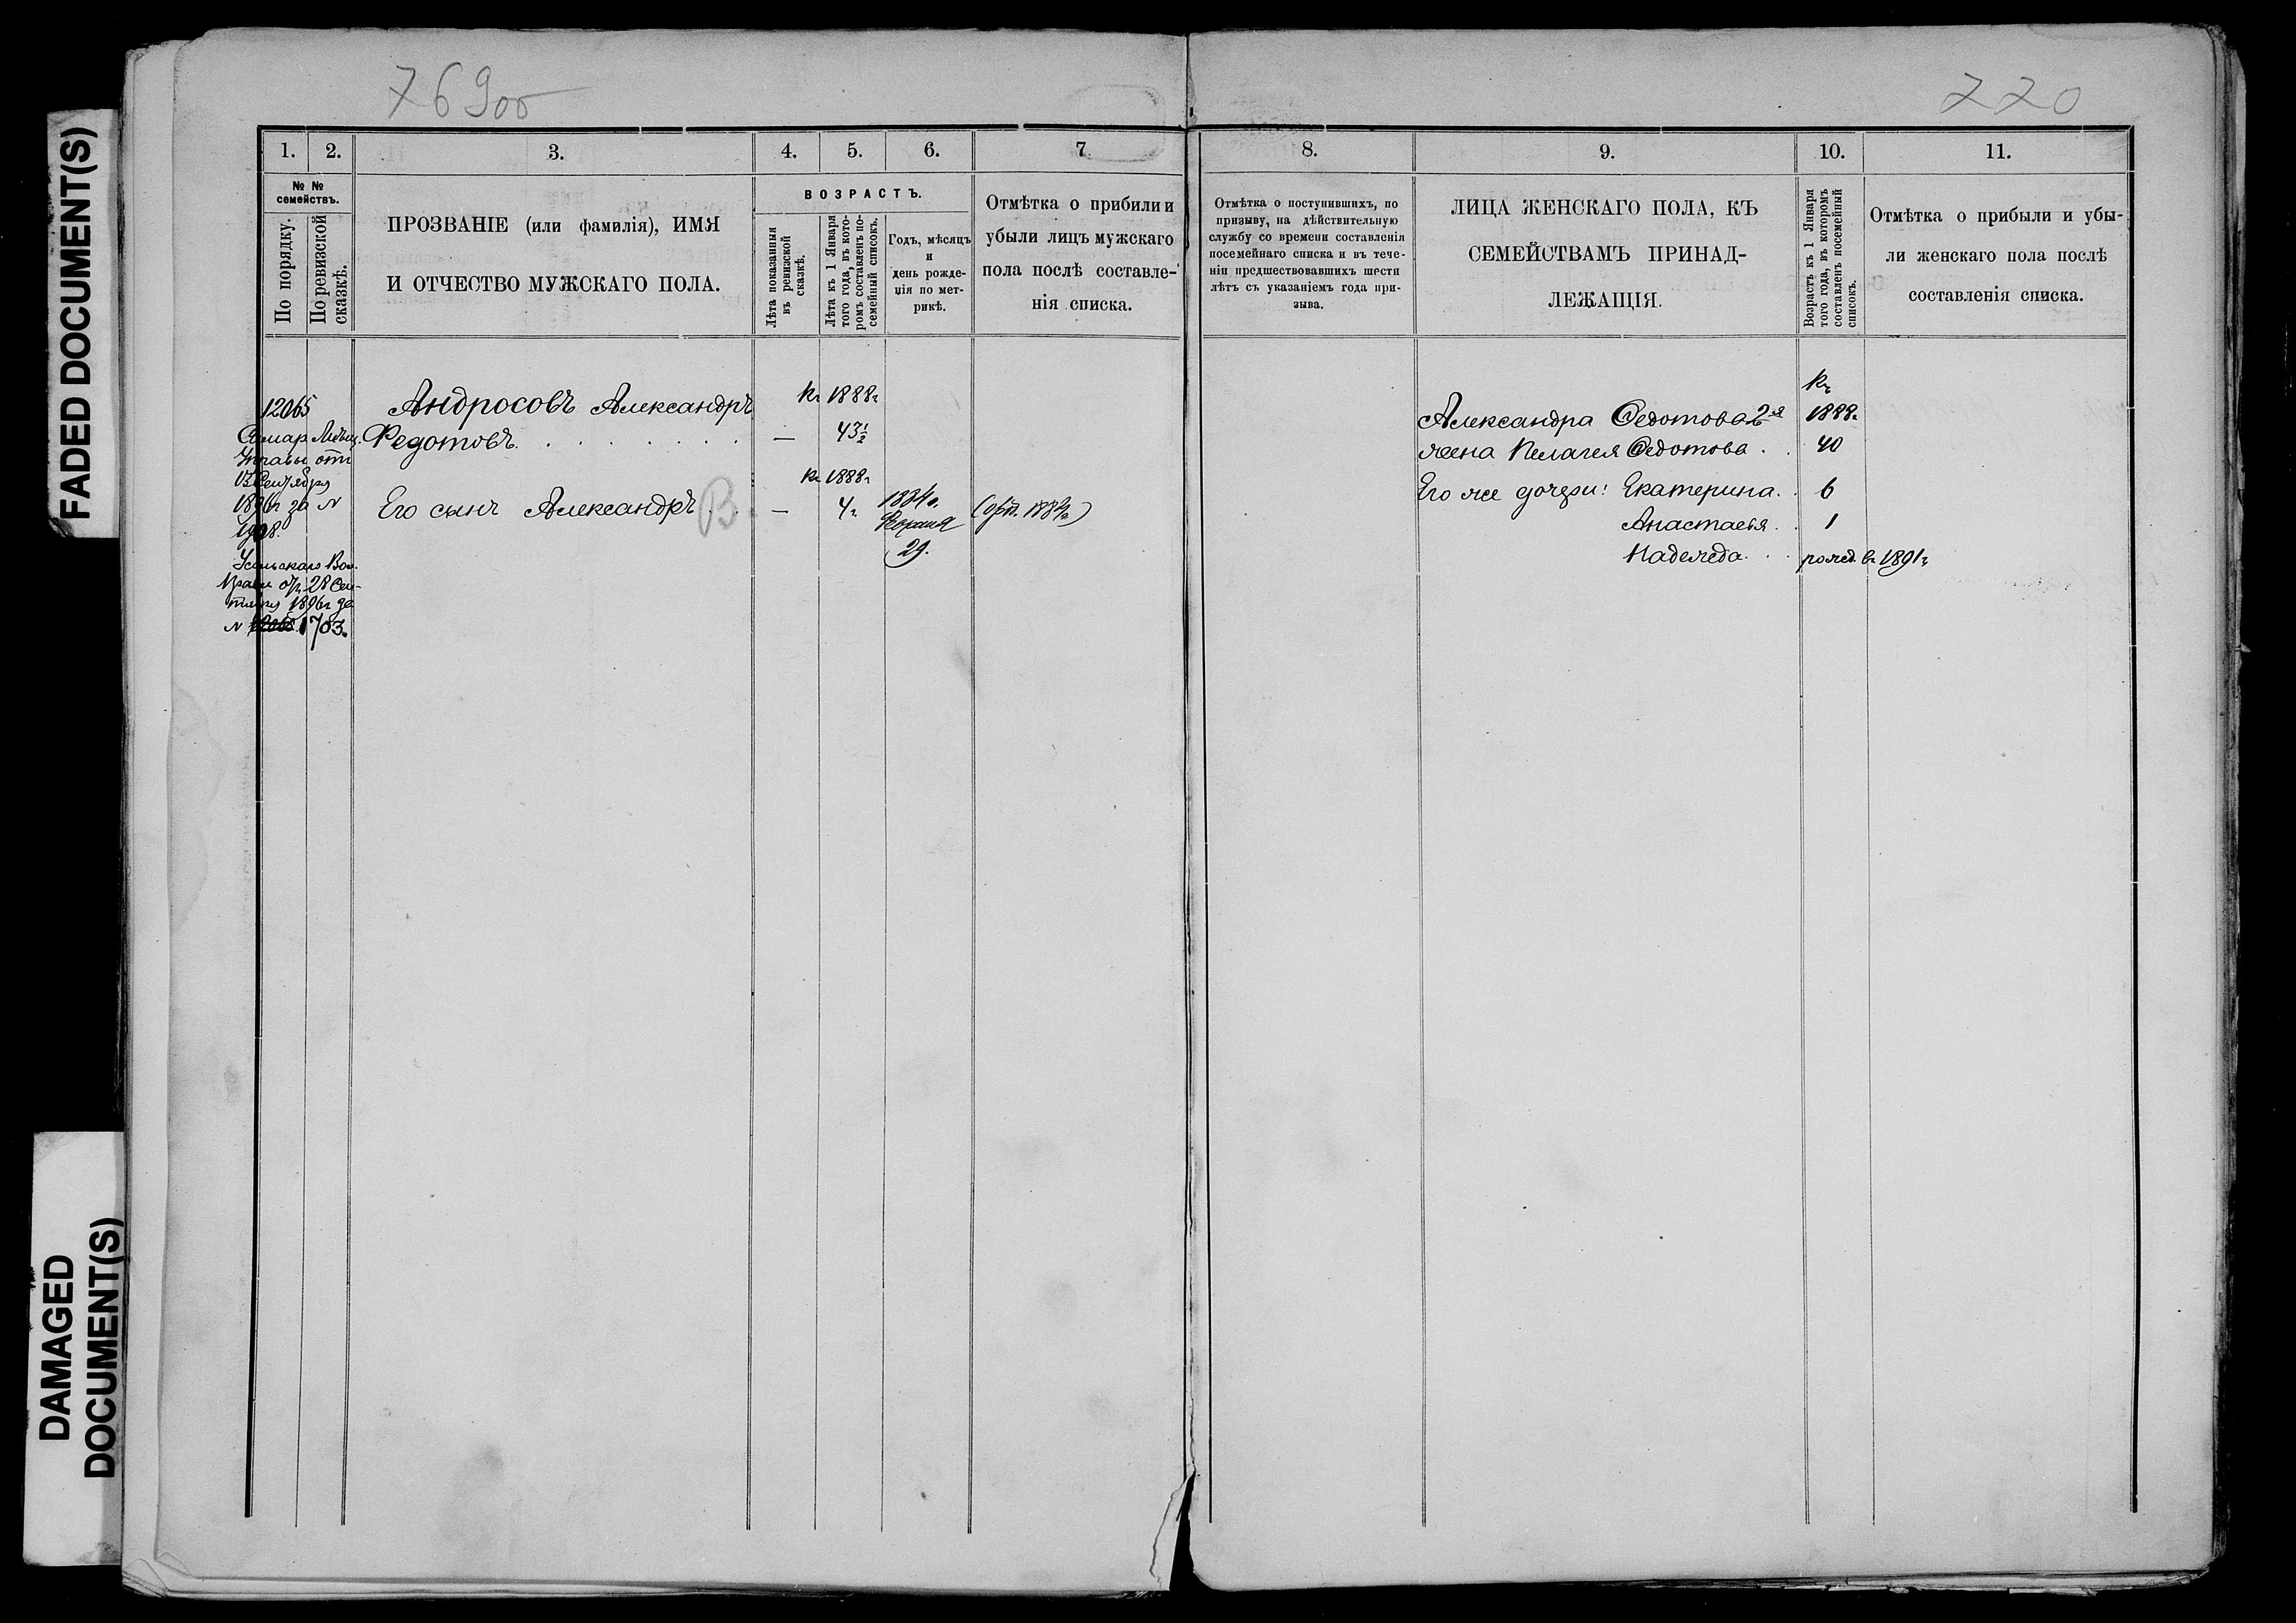 FADED DOCUMENT(S)
DAMAGED
DOCUMENT(S)
76900
1. 2. 3. 4. 5. 6. 7
№ №
семействъ.
По порядку.
По ревизской
сказкѣ.
ПРОЗВАНІЕ (или фамилія), ИМЯ
И ОТЧЕСТВО МУЖСКАГО ПОЛА.
ВОЗРАСТЪ.
Лѣта показанныя
въ ревизской
сказкѣ.
Лѣта къ 1 Января
того года, въ кото-
ромъ составленъ по-
семейный списокъ.
Годъ, мѣсяцъ
и
день рожде-
нія по мет-
рикѣ.
Отмѣтка о прибыли и
убыли лицъ мужскаго
пола послѣ составле-
нія списка.
12065
Управы отъ
Сентября
1896г за №
1908.
Вол.
Правл. отъ 28 Сен-
тября 1896г за
№ 1703.
Андросовъ Александръ
Федотовъ. . . . . . . .
Къ 1888г
— 43½
Его сынъ Александръ В
Къ 1888г
— 4г
1884г.
29.
220
8. 9. 10. 11.
Отмѣтка о поступившихъ, по
призыву, на дѣйствительную
службу со времени составленія
посемейнаго списка и въ тече-
ніи предшествовавшихъ шести
лѣтъ съ указаніемъ года при-
зыва.
ЛИЦА ЖЕНСКАГО ПОЛА, КЪ
СЕМЕЙСТВАМЪ ПРИНАД-
ЛЕЖАЩІЯ.
Возрастъ къ 1 Января
того года, въ которомъ
составленъ посемейный
списокъ.
Отмѣтка о прибыли и убы-
ли женскаго пола послѣ
составленія списка.
Къ
Александра Федотова 2я 1888г
жена Пелагея Федотова . . 40
Его же дочери: Екатерина. . 6
Анастасья. . 1
Надежда. . . рожд. въ 1891г